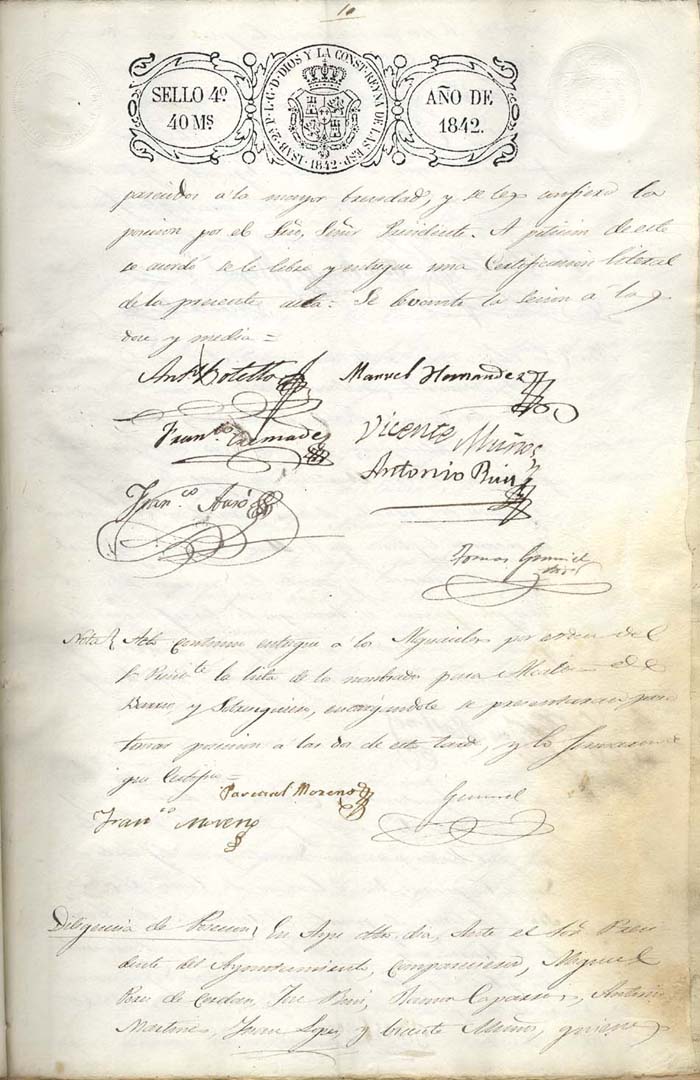 10
SELLO 4º
40 Ms
ISAB. 2ª P. L. G. D. DIOS Y LA CONST. REYNA DE LAS ESP.
1842
AÑO DE
1842.
á la mayor brevedad, y se les confiera la
posesion por el Señor Presidente. A peticion de este
se acordó se le libre y entregue una Certificacion literal
de la presente acta: Se levantó la sesion á las
doce y media =
Antº Botella
Manuel Hernandez
Franco Cremades
Vicente Muñoz
Antonio Ruiz
Fran.co
Tomas
Nota Acto continuo entregue á los Alguaciles por orden del
Sr Presite la lista de los nombrados para Alcaldes de
Barrio y encargandole se presentaran para
tomar posesion á las dos de esta tarde, y lo
que Certifico =
Pascual Moreno
Franco Moreno
Diligencia de Posesion En dho dia, Ante el Sor Presi
dente del Ayuntamiento, comparecieron, Miguel
Jose Ramon Antonio
Martinez, Juan Lopez, y Vicente Muñoz, quienes